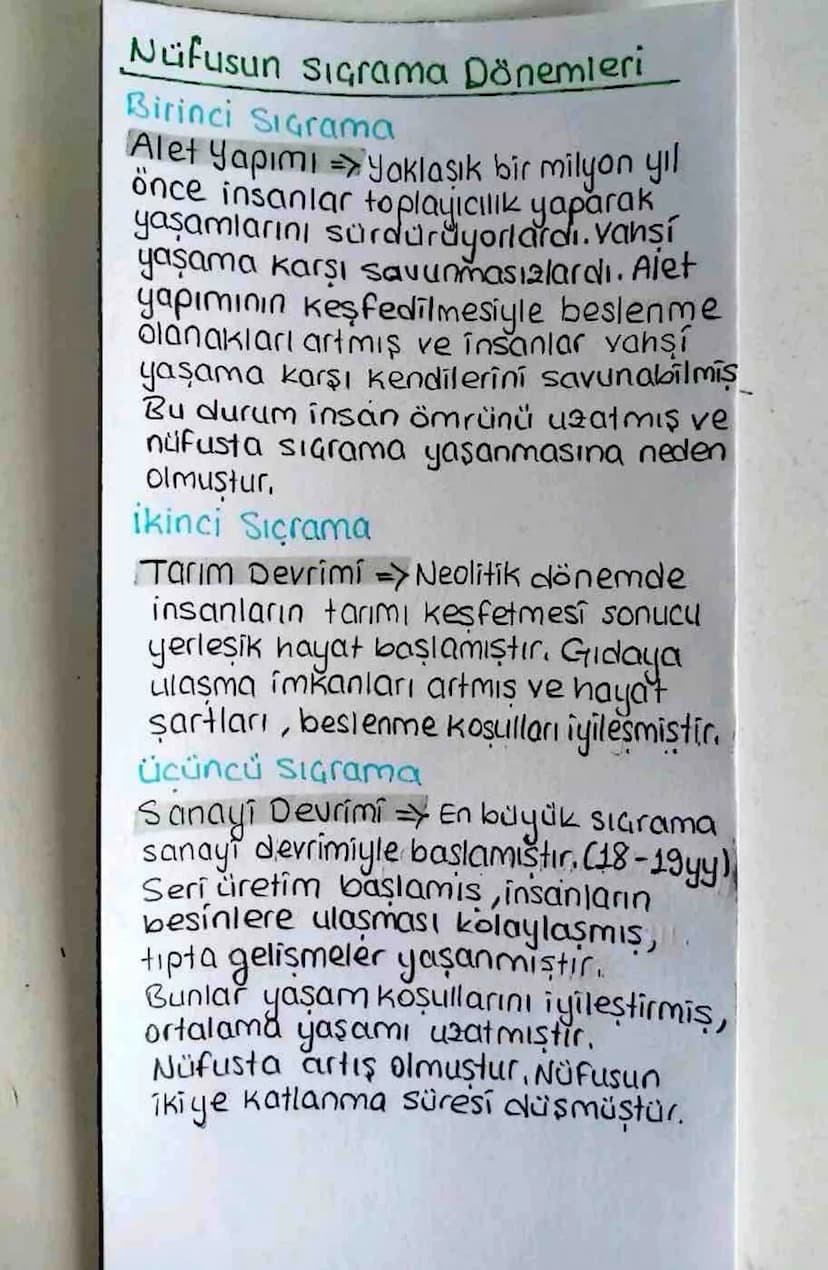 Nüfusun Sıçrama Dönemleri
Birinci Sıçrama
Alet Yapımı => Yaklaşık bir milyon yıl
önce insanlar toplayıcılık yaparak
yaşamlarını sürdürüyorlardı. Vahşi
yaşama karşı savunmasızlardı. Alet
yapımının keşfedilmesiyle beslenme
olanakları artmış ve insanlar vahşi
yaşama karşı kendilerini savunabilmiş
Bu durum insan ömrünü uzatmış ve
nüfusta sıçrama yaşanmasına neden
olmuştur.
İkinci Sıçrama
Tarım Devrimi => Neolitik dönemde
insanların tarımı keşfetmesi sonucu
yerleşik hayat başlamıştır. Gıdaya
ulaşma imkanları artmış ve hayat
şartları, beslenme koşulları iyileşmiştir.
Üçüncü Sıçrama
Sanayi Devrimi => En büyük sıçrama
sanayi devrimiyle başlamıştır. (18-19yy)
Seri üretim başlamış, insanların
besinlere ulaşması kolaylaşmış,
tıpta gelişmeler yaşanmıştır.
Bunlar yaşam koşullarını iyileştirmiş,
ortalama yaşamı uzatmıştır.
Nüfusta artış olmuştur. Nüfusun
ikiye katlanma süresi düşmüştür.